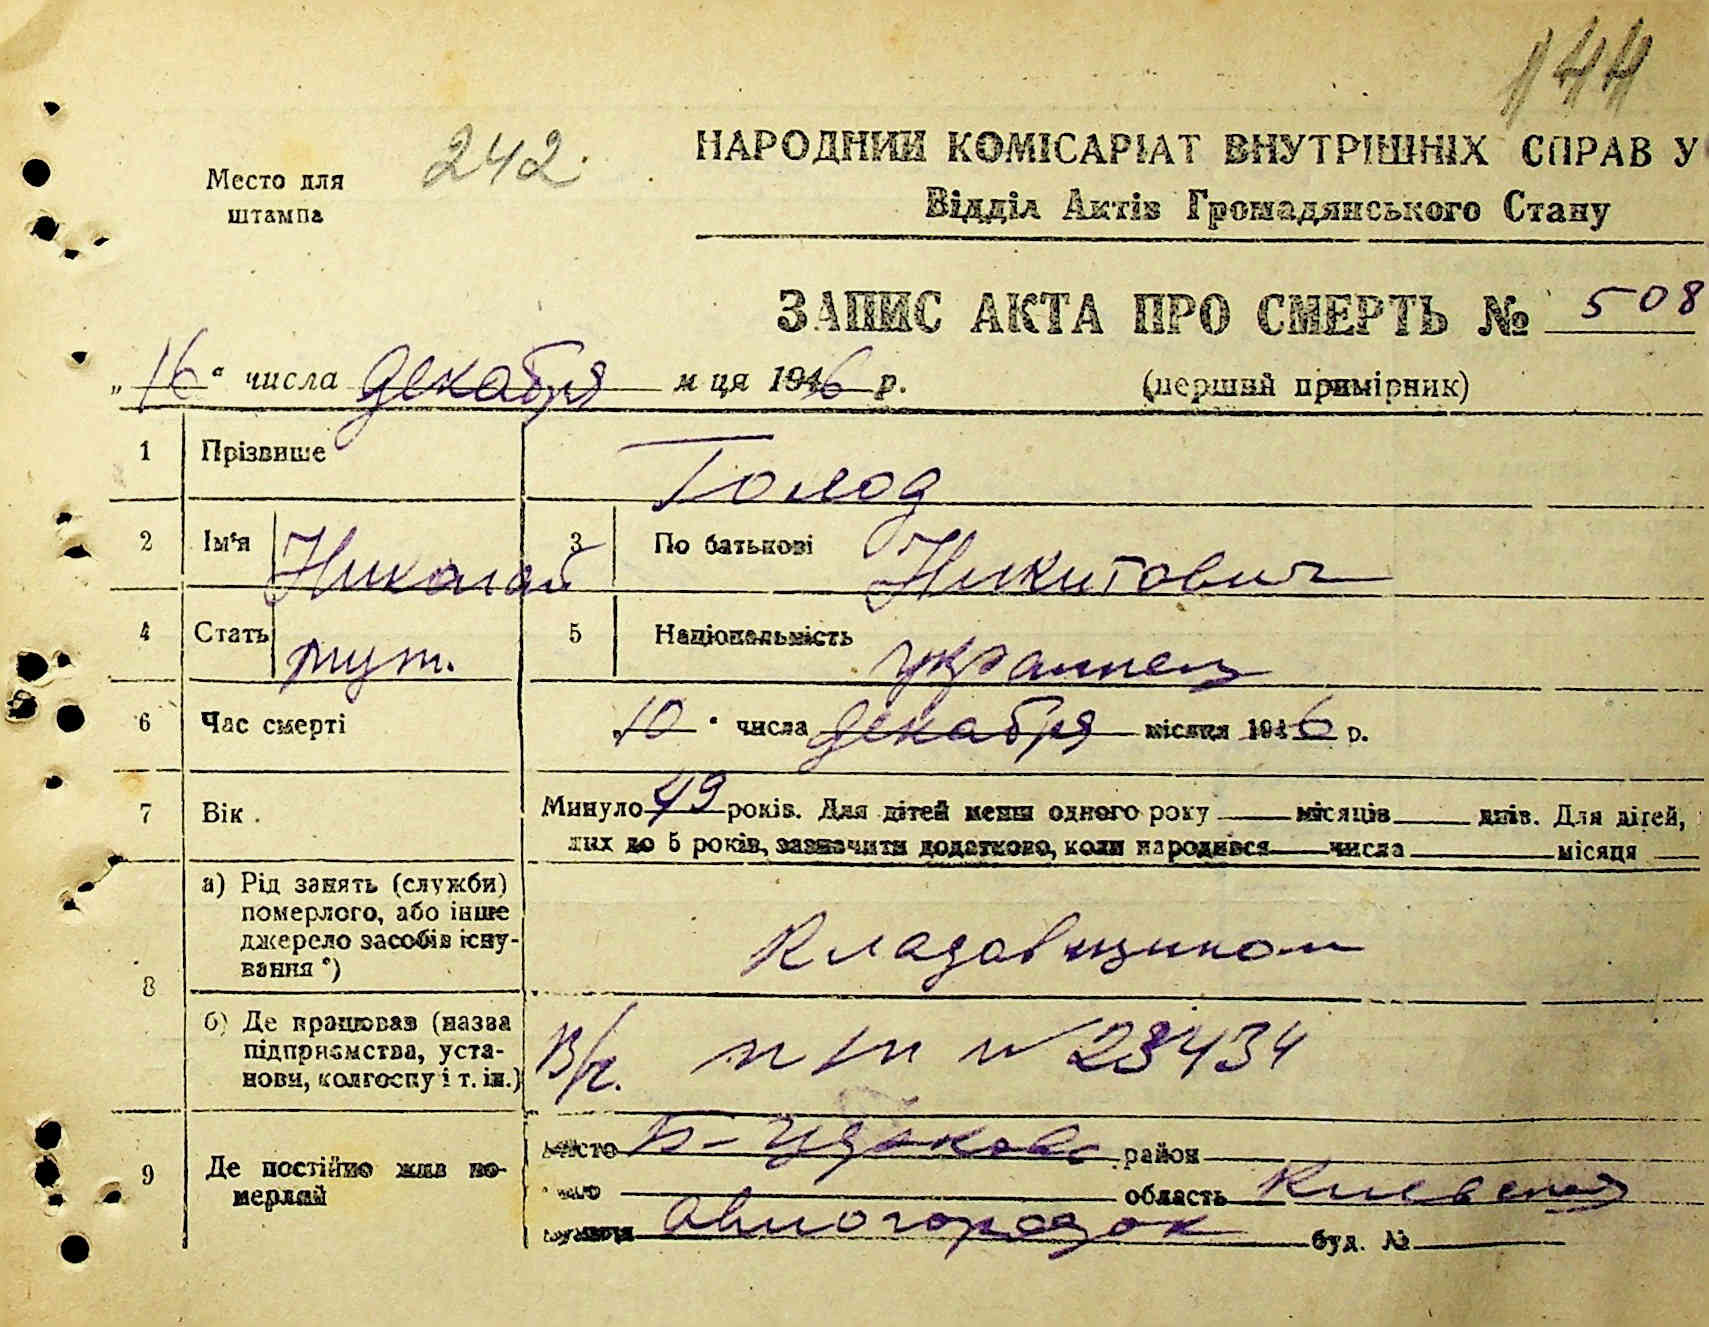 144
242.
Место для
штампа
НАРОДНИЙ КОМІСАРІАТ ВНУТРІШНІХ СПРАВ У
Відділ Актів Громадянського Стану
ЗАПИС АКТА ПРО СМЕРТЬ № 508
„16“ числа декабря м ця 1946 р. (перший примірник)
1 Прізвище Голод
2 Ім'я Николай 3 По батькові Никитович
4 Стать муж. 5 Національність украинец
6 Час смерті „10“ числа декабря місяця 1946 р.
7 Вік. Минуло 49 років. Для дітей менш одного року місяців днів. Для дітей,
лих до 5 років, зазначити додатково, коли народився числа місяця
8 а) Рід занять (служби)
померлого, або інше
джерело засобів існу-
вання *)
Кладовщиком
б) Де працював (назва
підприємства, уста-
нови, колгоспу і т. ін.)
В/ч. п/п № 23434
9 Де постійно жив по-
мерлий
місто Б-Церковь район
область Киевская
вулиця авиогородок буд. №